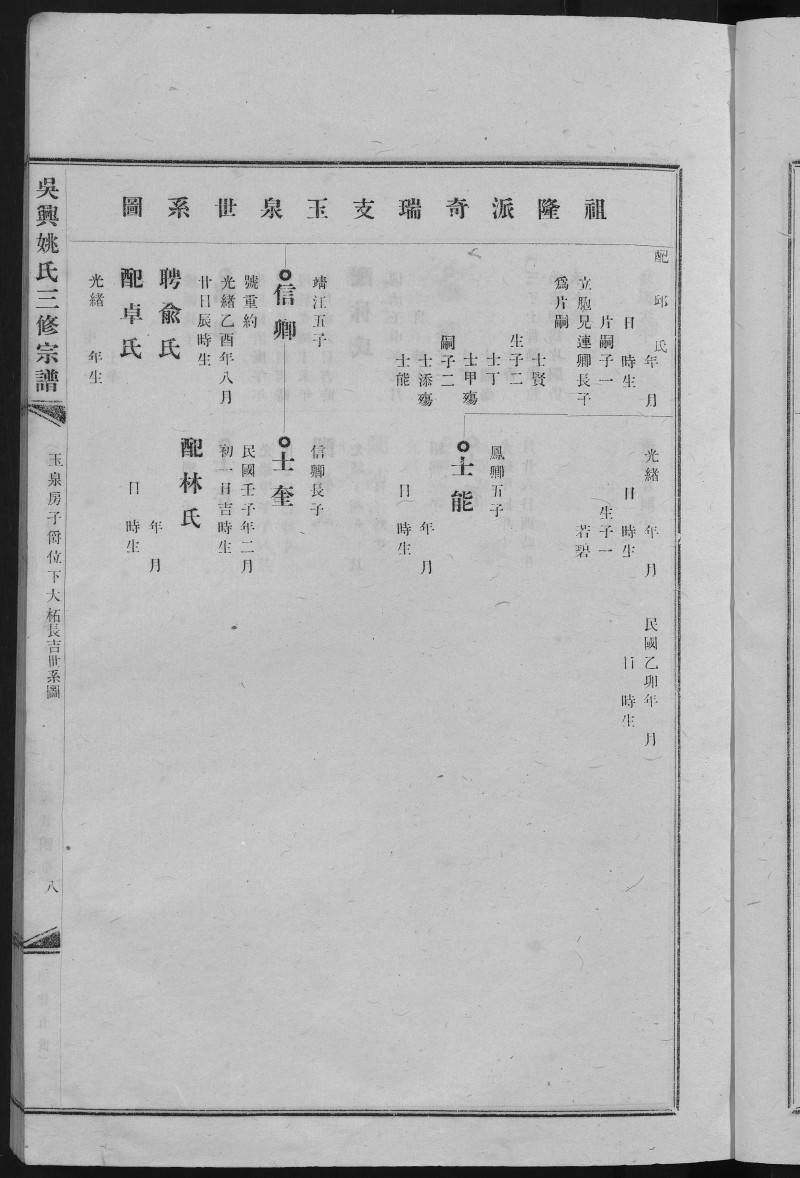 祖隆派奇瑞支玉泉世系圖
配邱氏
年月
日時生
片嗣子一
立胞兄連卿長子
爲片嗣
士賢
生子二
士丁
士甲殤
嗣子二
士添殤
士能
靖江五子
信卿
號重約
光緒乙酉年八月
廿日辰時生
聘兪氏
配卓氏
光緒年生
光緒年月
日時生
生子一
若碧
鳳卿五子
士能
年月
日時生
信卿長子
士奎
民國壬子年二月
初一日吉時生
配林氏
年月
日時生
民國乙卯年月
日時生
吳興姚氏三修宗譜
玉泉房子爵位下大柘長吉世系圖
八